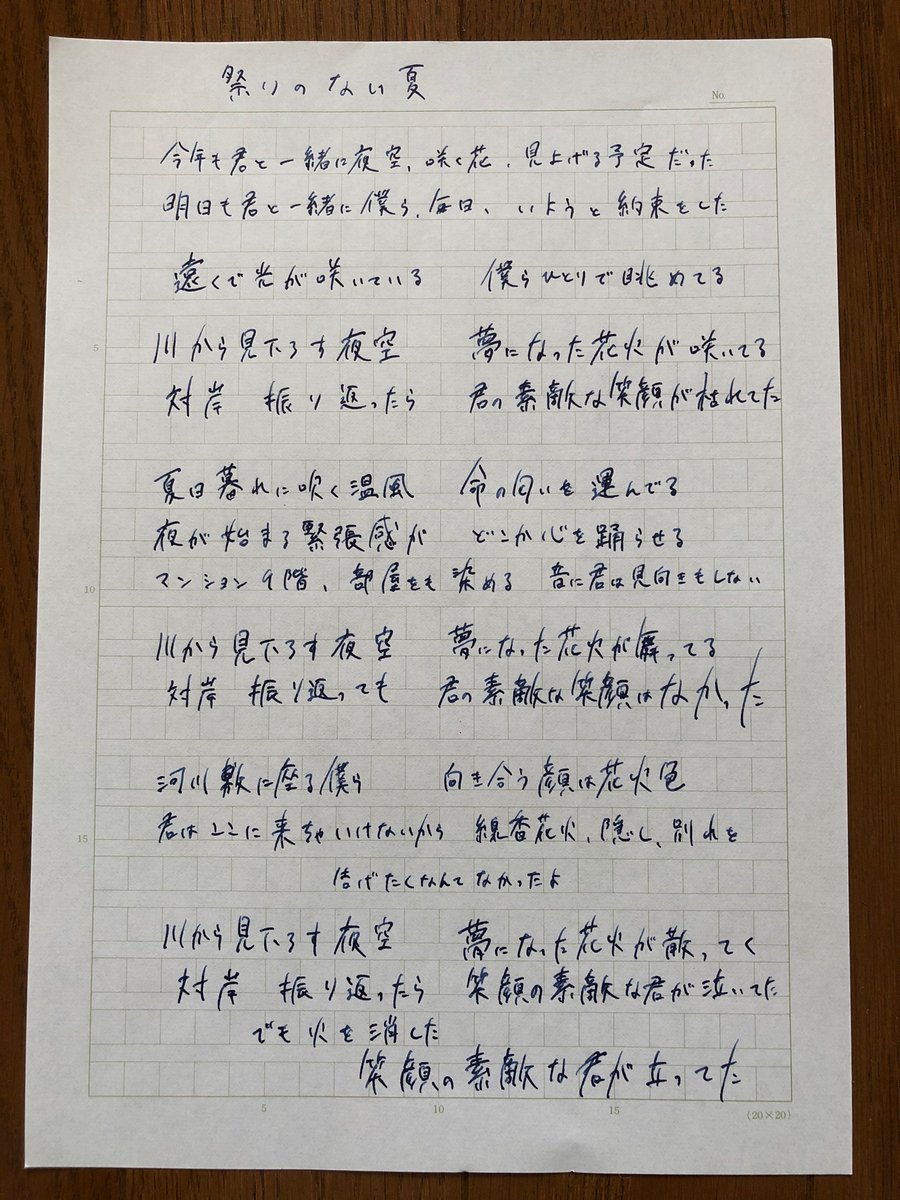 祭りのない夏
No.
今年も君と一緒に夜空、咲く花、見上げる予定だった
明日も君と一緒に僕ら、毎日、いようと約束をした
遠くで光が咲いている　僕らひとりで眺めてる
5 川から見下ろす夜空　夢になった花火が咲いてる
対岸　振り返ったら　君の素敵な笑顔が枯れてた
夏日暮れに吹く温風　命の匂いを運んでる
夜が始まる緊張感が　どこか心を踊らせる
10 マンション9階、部屋をも染める　音に君は見向きもしない
川から見下ろす夜空　夢になった花火が舞ってる
対岸　振り返っても　君の素敵な笑顔はなかった
河川敷に座る僕ら　向き合う顔は花火色
15 君はここに来ちゃいけないから　線香花火、隠し、別れを
告げたくなんてなかったよ
川から見下ろす夜空　夢になった花火が散ってく
対岸　振り返ったら　笑顔の素敵な君が泣いてた
でも火を消した
笑顔の素敵な君が立ってた
5 10 15 (20×20)